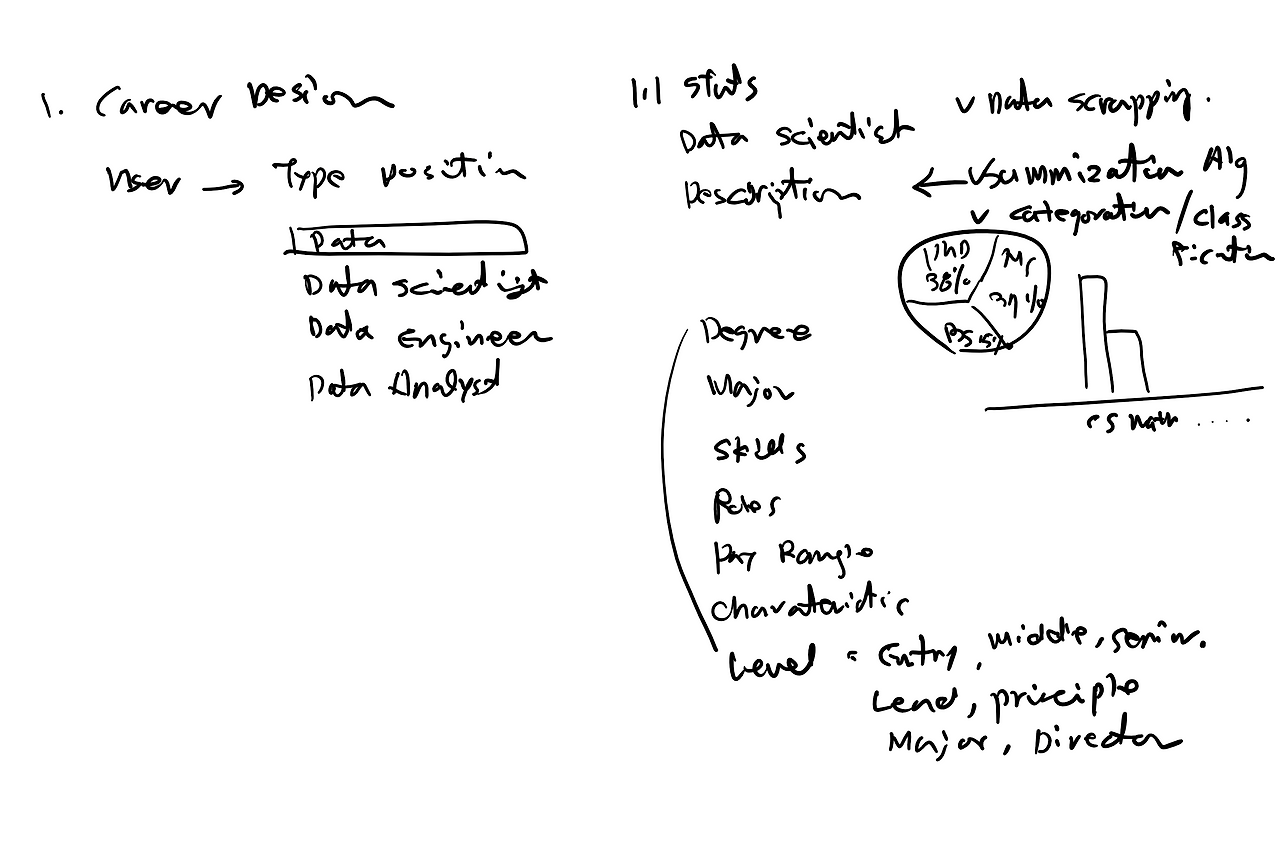 1. Career Design
User → Type position
Data
Data scientist
Data Engineer
Data Analyst
1.1 Stats
Data scientist
Description
v Data scrapping.
← v Summization Alg
v categoration / class
fication
PhD
38%
Ms
37%
BS
CS Math ....
Degree
Major
Skills
Roles
Pay Range
Charateristic
Level = Entry, middle, senior.
Lead, priciple
Major, Director